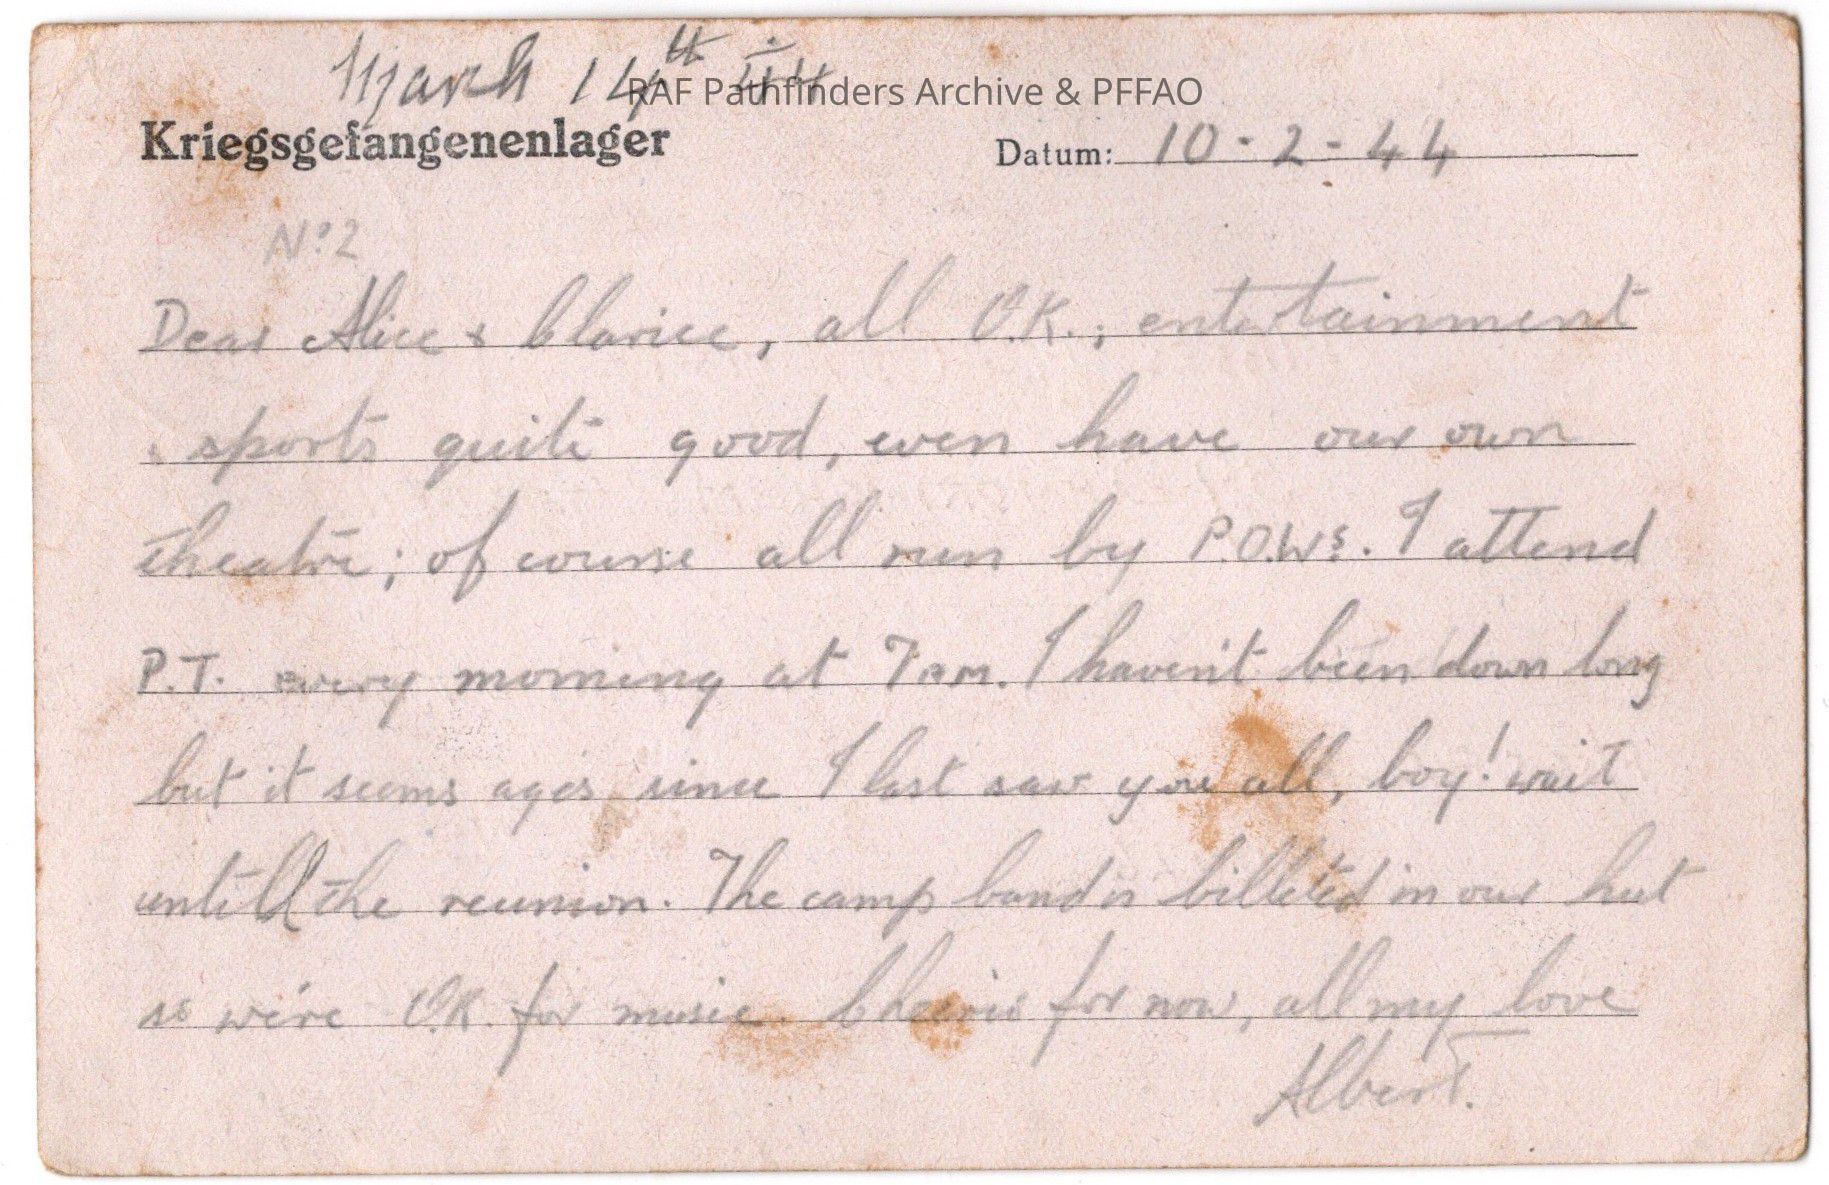 March 14th 44
RAF Pathfinders Archive & PFFAO
Kriegsgefangenenlager Datum: 10-2-44
No 2
Dear Alice & Clarice, all O.K., entertainment
& sports quite good, even have our own
theatre; of course all run by P.O.Ws. I attend
P.T. every morning at 7 AM. I haven't been down long
but it seems ages since I last saw you all, boy! wait
untill the reunion. The camp band is billeted in our hut
so we're O.K. for music. Cheerio for now, all my love
Albert.